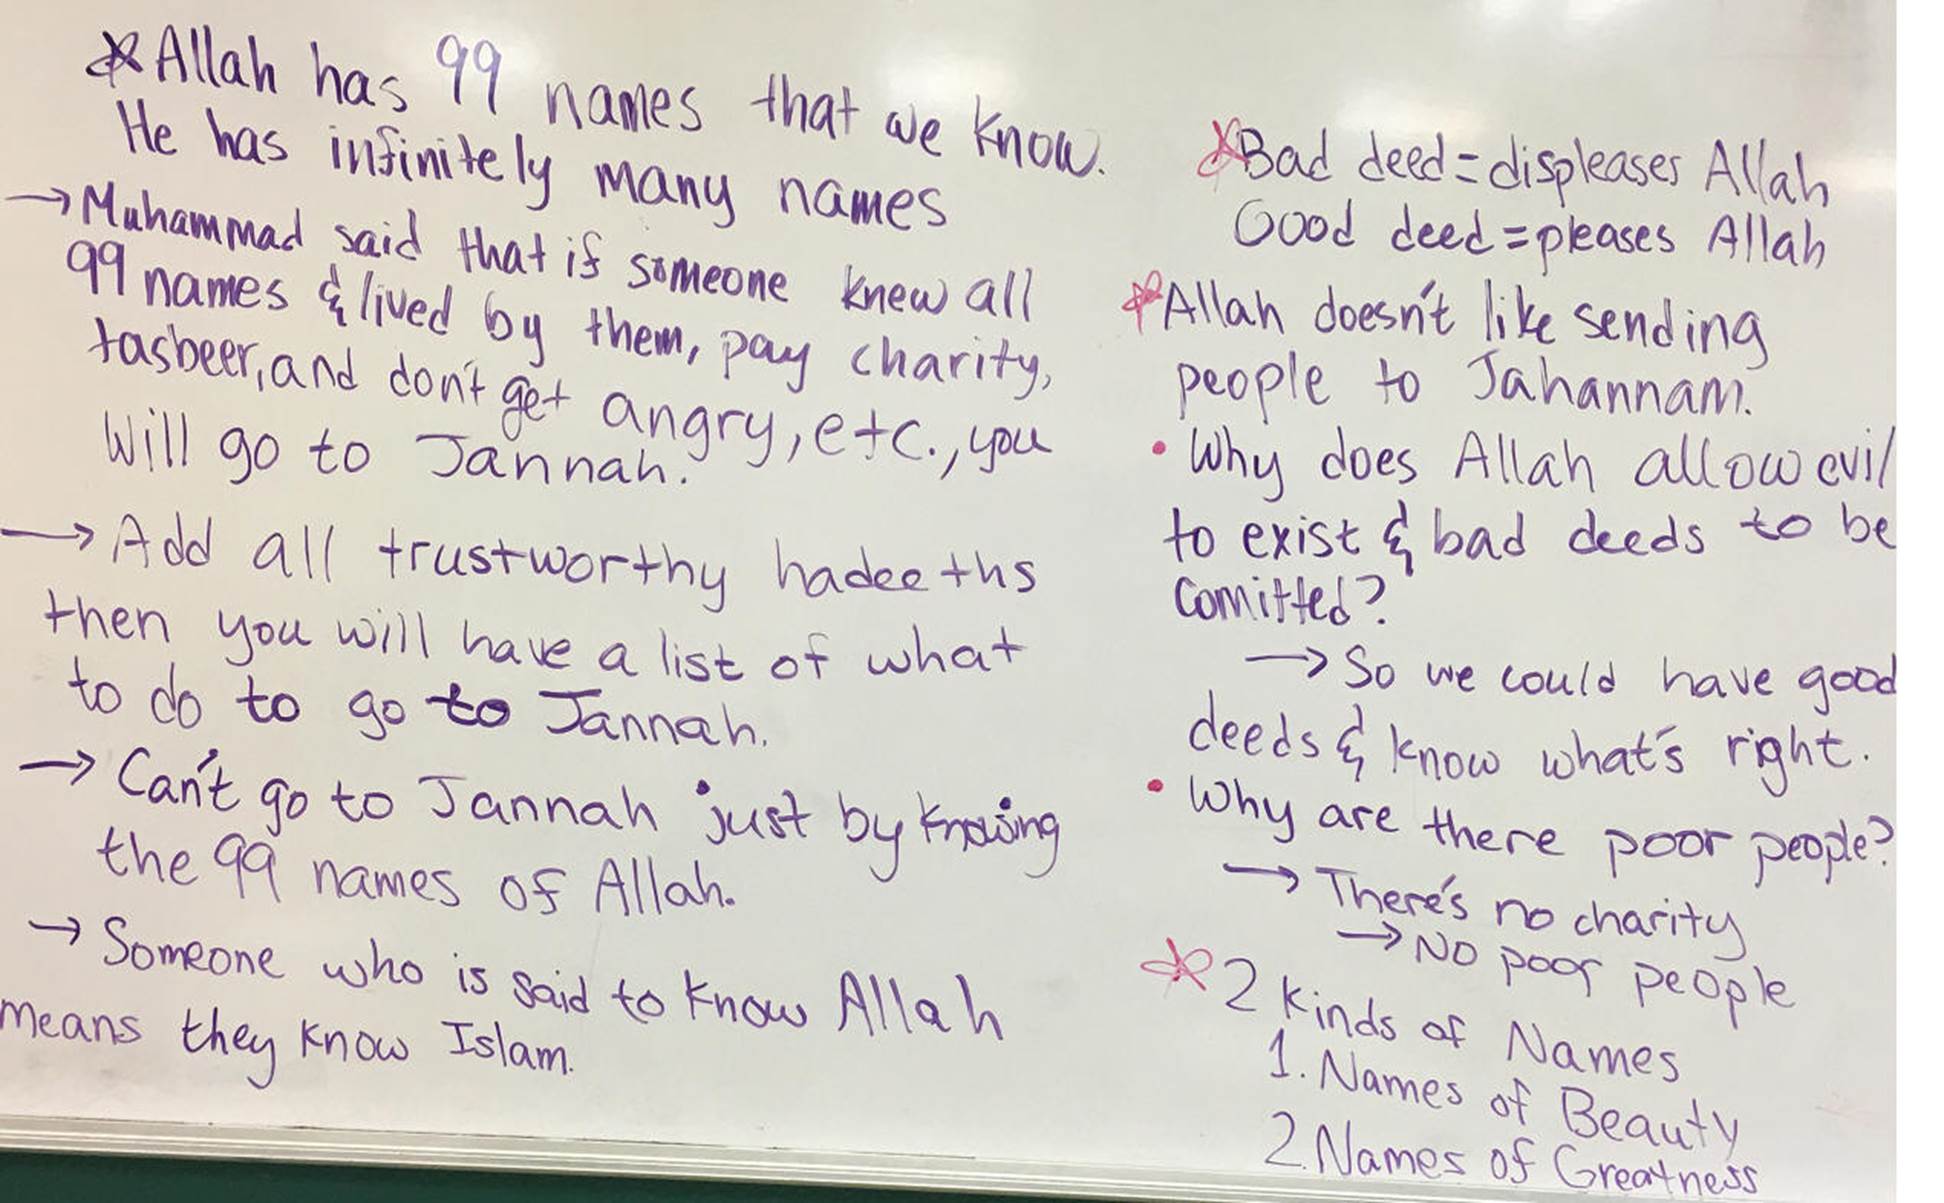 Allah has 99 names that we know.
He has infinitely many names
→ Muhammad said that if someone knew all
99 names & lived by them, pay charity,
tasbeer, and don't get angry, etc., you
will go to Jannah.
→ Add all trustworthy hadeeths
then you will have a list of what
to do to go to Jannah.
→ Can't go to Jannah just by knowing
the 99 names of Allah.
→ Someone who is said to know Allah
means they know Islam.
Bad deed = displeases Allah
Good deed = pleases Allah
Allah doesn't like sending
people to Jahannam.
• Why does Allah allow evil
to exist & bad deeds to be
comitted?
→ So we could have good
deeds & know what's right.
• Why are there poor people?
→ There's no charity
→ No poor people
2 kinds of Names
1. Names of Beauty
2. Names of Greatness